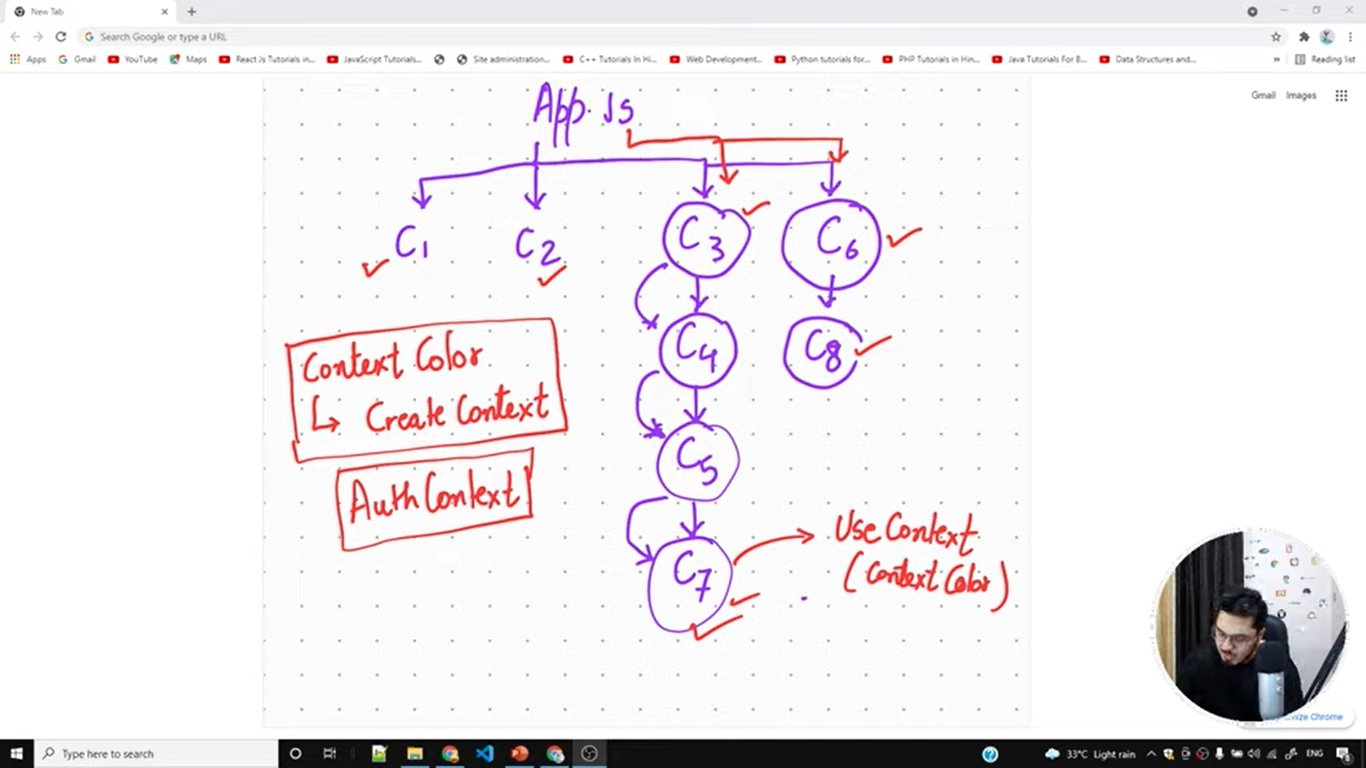 New Tab
Search Google or type a URL
Apps
Gmail
YouTube
Maps
React Js Tutorials in...
JavaScript Tutorials...
Site administration...
C++ Tutorials In H...
Web Development...
Python tutorials for...
PHP Tutorials in Hin...
Java Tutorials For B...
Data Structures and...
»
Reading list
Gmail Images
App.Js
C1 C2 C3 C6
C4 C8
Context Color
↳ Create Context
C5
Auth Context
C7
Use Context
(Context Color)
Type here to search
33°C Light rain
ENG